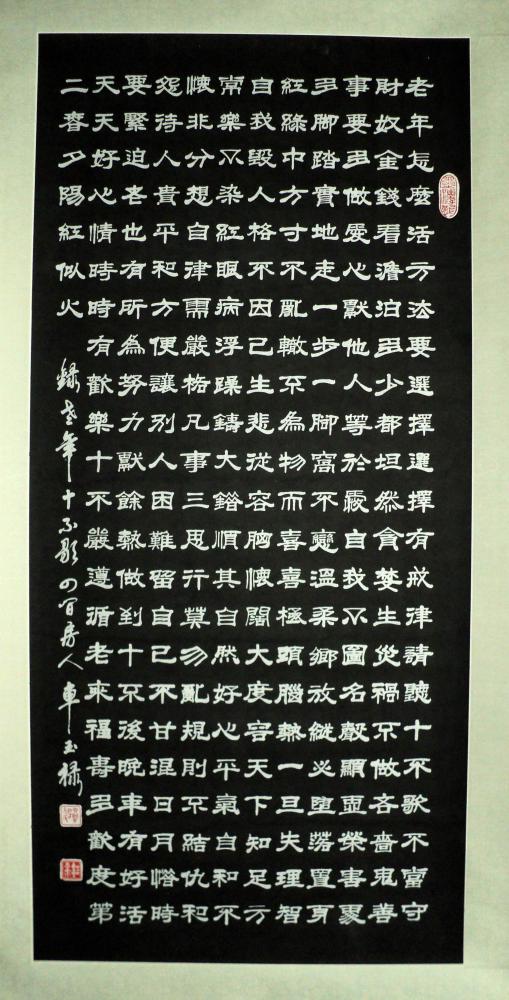 老年怎麼活方法要選擇選擇有戒律請聽十不歌不當守
財奴金錢看澹泊多少都坦然貪婪生災禍不做吝嗇鬼善
事要多做愛心獻他人等於自我不圖名聲顯虛榮害累
多腳踏實地走一步一腳窩不戀溫柔鄉放縱必墮落置身
紅綠中方寸不亂轍不為物而喜喜極頭腦熱一旦失理智
自我毀人格不因己生悲從容胸懷闊大度容天下知足方
常樂不染紅眼病浮躁鑄大錯順其自然好心平氣自和不
懷非分想自律需嚴格凡事三思行莫勿亂規則不結仇和
怨待人貴平和方便讓別人困難留自己不甘混日月惜時
要緊迫老也有所為努力獻餘熱做到十不後晚年有好活
天天好心情時時有歡樂十不嚴遵循老來福壽多歡度第
二春夕陽紅似火
錄老年十不歌 四間房人車玉祿